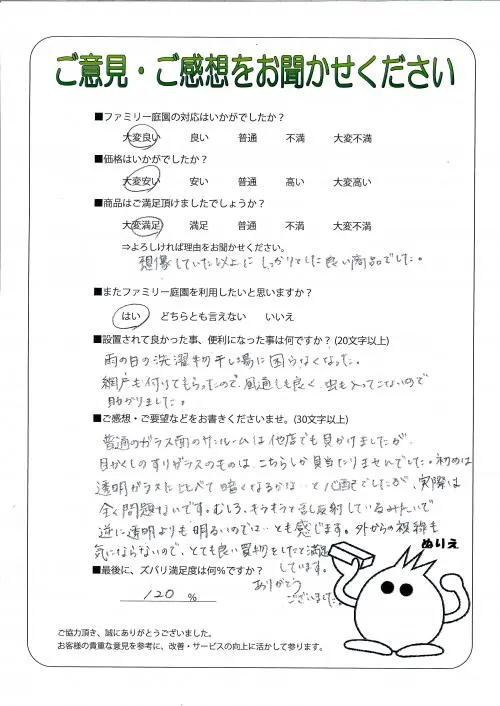 ご意見・ご感想をお聞かせください
■ファミリー庭園の対応はいかがでしたか？
大変良い 良い 普通 不満 大変不満
■価格はいかがでしたか？
大変安い 安い 普通 高い 大変高い
■商品はご満足頂けましたでしょうか？
大変満足 満足 普通 不満 大変不満
⇒よろしければ理由をお聞かせください。
想像していた以上にしっかりとした良い商品でした。
■またファミリー庭園を利用したいと思いますか？
はい どちらとも言えない いいえ
■設置されて良かった事、便利になった事は何ですか？(20文字以上)
雨の日の洗濯物干し場に困らなくなった。
網戸も付けてもらったので、風通しも良く、虫も入ってこないので
助かりました。
■ご感想・ご要望などをお書きくださいませ。(30文字以上)
普通のガラス面のサンルームは他店でも見かけましたが
目かくしのすりガラスのものは、こちらしか見当たりませんでした。初めは
透明ガラスに比べて暗くなるかな…と心配でしたが、実際は
全く問題ないです。むしろ、キラキラと乱反射しているみたいで
逆に透明よりも明るいのでは…とも感じます。外からの視線も
気にならないので、とても良い買物をしたと満足
しています。
ありがとう
ございました。
ぬりえ
■最後に、ズバリ満足度は何％ですか？
120 ％
ご協力頂き、誠にありがとうございました。
お客様の貴重な意見を参考に、改善・サービスの向上に活かして参ります。